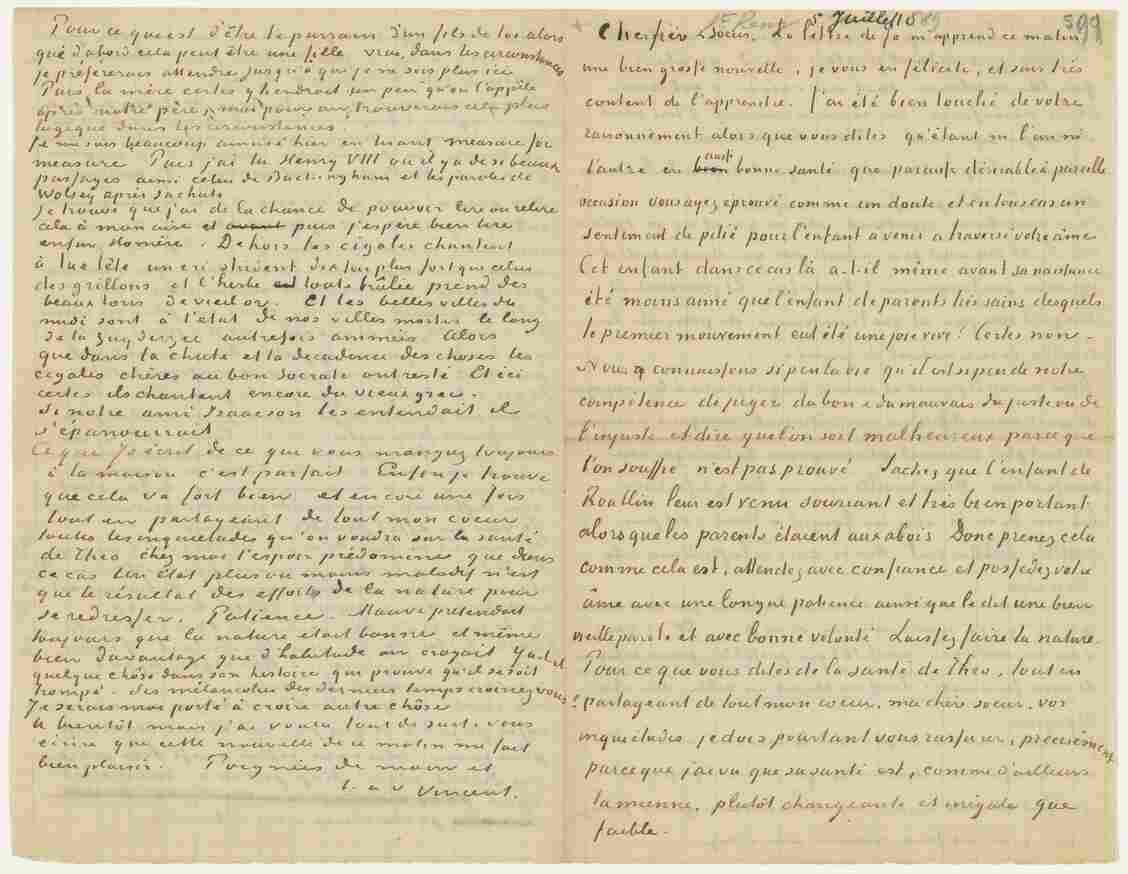 Pour ce qui est d'être le parrain d'un fils de toi alors
que d'abord cela peut être une fille vrai, dans les circonstances
je préférerais attendre jusqu'à que je ne sois plus ici
Puis la mère certes y tiendrait un peu qu'on l'appelle
après notre père, moi pour un, trouverais cela plus
logique dans les circonstances.
Je me suis beaucoup amusé hier en lisant measure for
measure Puis j'ai lu Henry VIII où il y a de si beaux
passages ainsi celui de Buckingham et les paroles de
Wolsey après sa chute
Je trouve que j'ai de la chance de pouvoir lire ou relire
cela à mon aise et avant puis j'espère bien lire
enfin Homère. Dehors les cigales chantent
à tue tête un cri strident dix fois plus fort que celui
des grillons et l'herbe toute brûlée prend des
beaux tons de vieil or. Et les belles villes du
midi sont à l'état de nos villes mortes le long
de la Zuyderzee autrefois animées Alors
que dans la chute et la décadence des choses les
cigales chères au bon Socrate ont resté Et ici
certes ils chantent encore du vieux grec.
Si notre ami Isaäcson les entendait il
s'épanouirait
Ce que Jo écrit de ce que vous mangez toujours
à la maison c'est parfait Enfin je trouve
que cela va fort bien et encore une fois
tout en partageant de tout mon coeur
toutes les inquiétudes qu'on voudra sur la santé
de Theo chez moi l'espoir prédomine que dans
ce cas Un état plus ou moins maladif n'est
que le résultat des efforts de la nature pour
se redresser. Patience. Mauve prétendait
toujours que la nature était bonne et même
bien davantage que d'habitude on croyait Y a t-il
quelque chôse dans son histoire qui prouve qu'il se soit
trompé. Ses mélancolies des derniers temps croiriez vous ?
Je serais moi porté à croire autre chôse
à bientôt mais j'ai voulu tout de suite vous
écrire que cette nouvelle de ce matin me fait
bien plaisir. Poignées de main et
t. à v Vincent.
St Remy 5 Juillet 1889
Cher frère & Soeur, La lettre de Jo m'apprend ce matin
une bien grosse nouvelle, je vous en félicite, et suis très
content de l'apprendre. J'ai été bien touché de votre
raisonnement alors que vous dites qu'étant ni l'un ni
l'autre en bien aussi bonne santé que paraisse désirable à pareille
occasion vous ayez éprouvé comme un doute et en tous cas un
sentiment de pitié pour l'enfant à venir a traversé votre âme
Cet enfant dans ce cas là a-t-il même avant sa naissance
été moins aimé que l'enfant de parents très sains desquels
le premier mouvement eut été une joie vive? Certes non -
Nous connaissons si peu la vie qu'il est si peu de notre
compétence de juger du bon & du mauvais du juste ou de
l'injuste et dire que l'on soit malheureux parce que
l'on souffre n'est pas prouvé Sachez que l'enfant de
Roullin leur est venu souriant et très bien portant
alors que les parents étaient aux abois Donc prenez cela
comme cela est, attendez avec confiance et possédez votre
âme avec une longue patience ainsi que le dit une bien
vieille parole et avec bonne volonté Laissez faire la nature.
Pour ce que vous dites de la santé de Theo, tout en
partageant de tout mon coeur, ma chère soeur, vos
inquietudes je dois pourtant vous rassurer, précisément
parceque j'ai vu que sa santé est, comme d'ailleurs
la mienne, plutôt changeante et inégale que
faible.